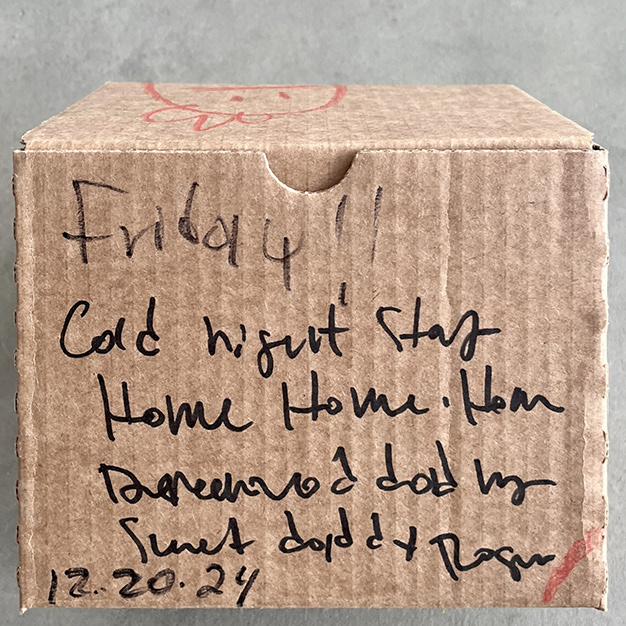 Friday !!
Cold night stay
Home Home. Hom
dad by
Sweet daddy Roger
12.20.24